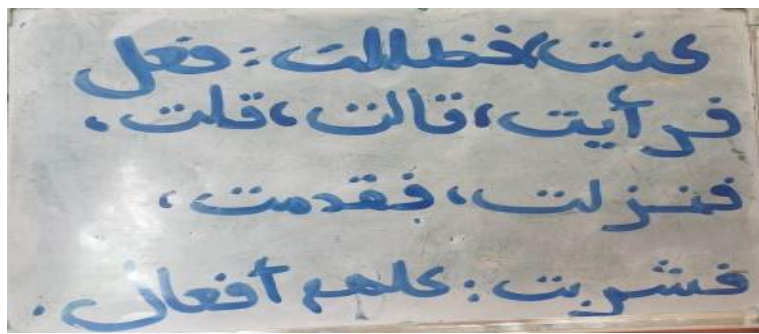 كنت، فظللت: فعل
فرأيت، قالت، قلت،
فنزلت، فقدمت،
فشربت: كلهم أفعال.